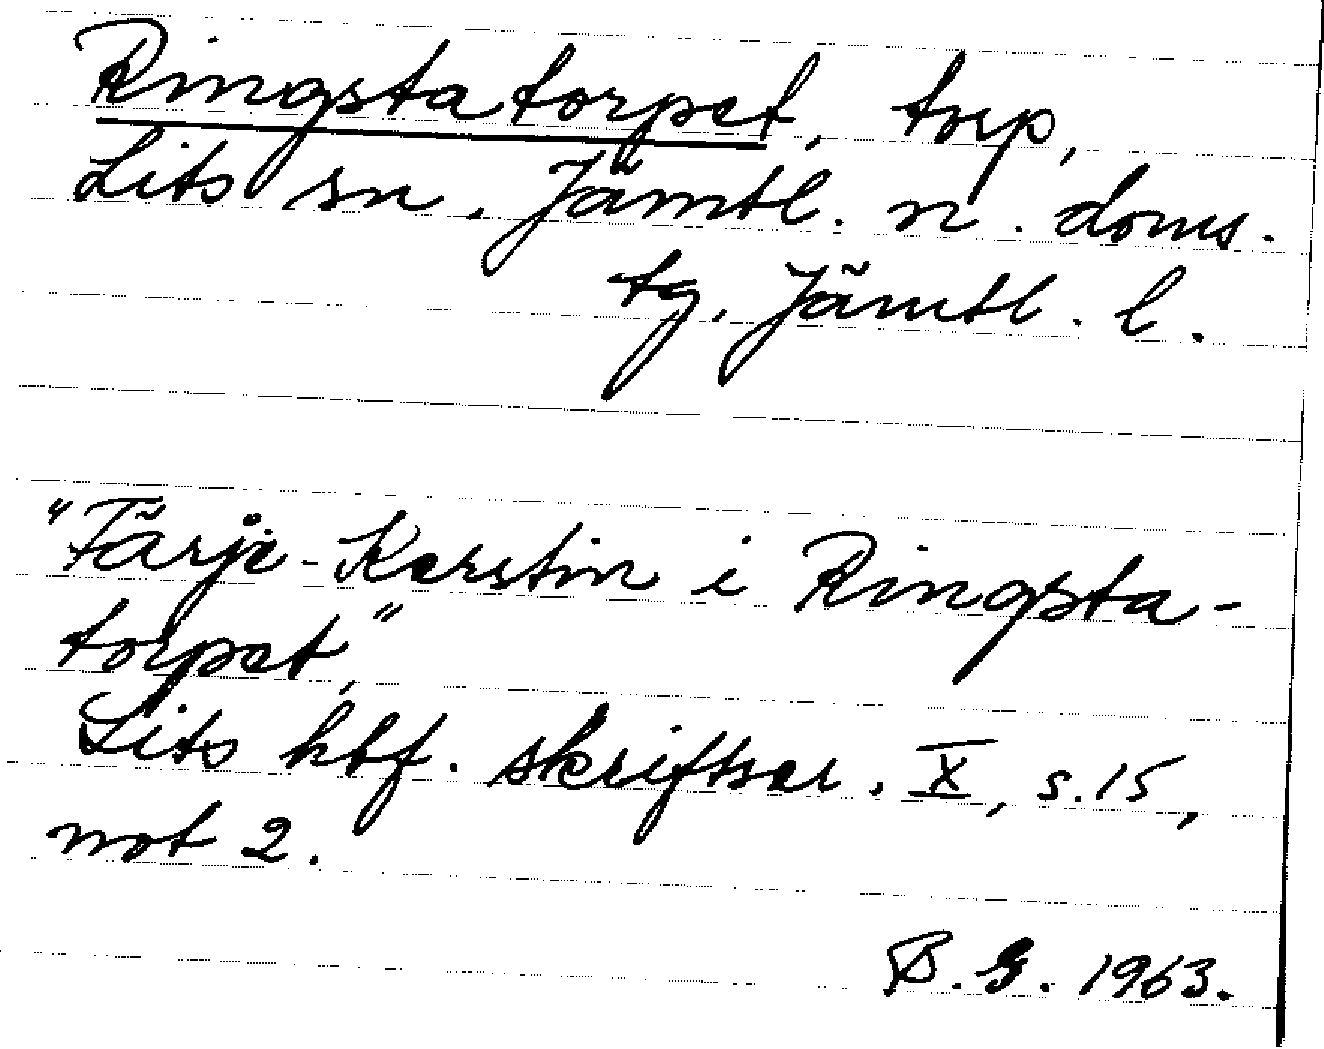 Ringstatorpet, torp,
Lits sn. Jämtl. n. doms.
tg. Jämtl. l.
"Färje-Kerstin i Ringsta-
torpet,"
Lits hbf. skriftser. X, s. 15,
not 2.
B. G. 1963.